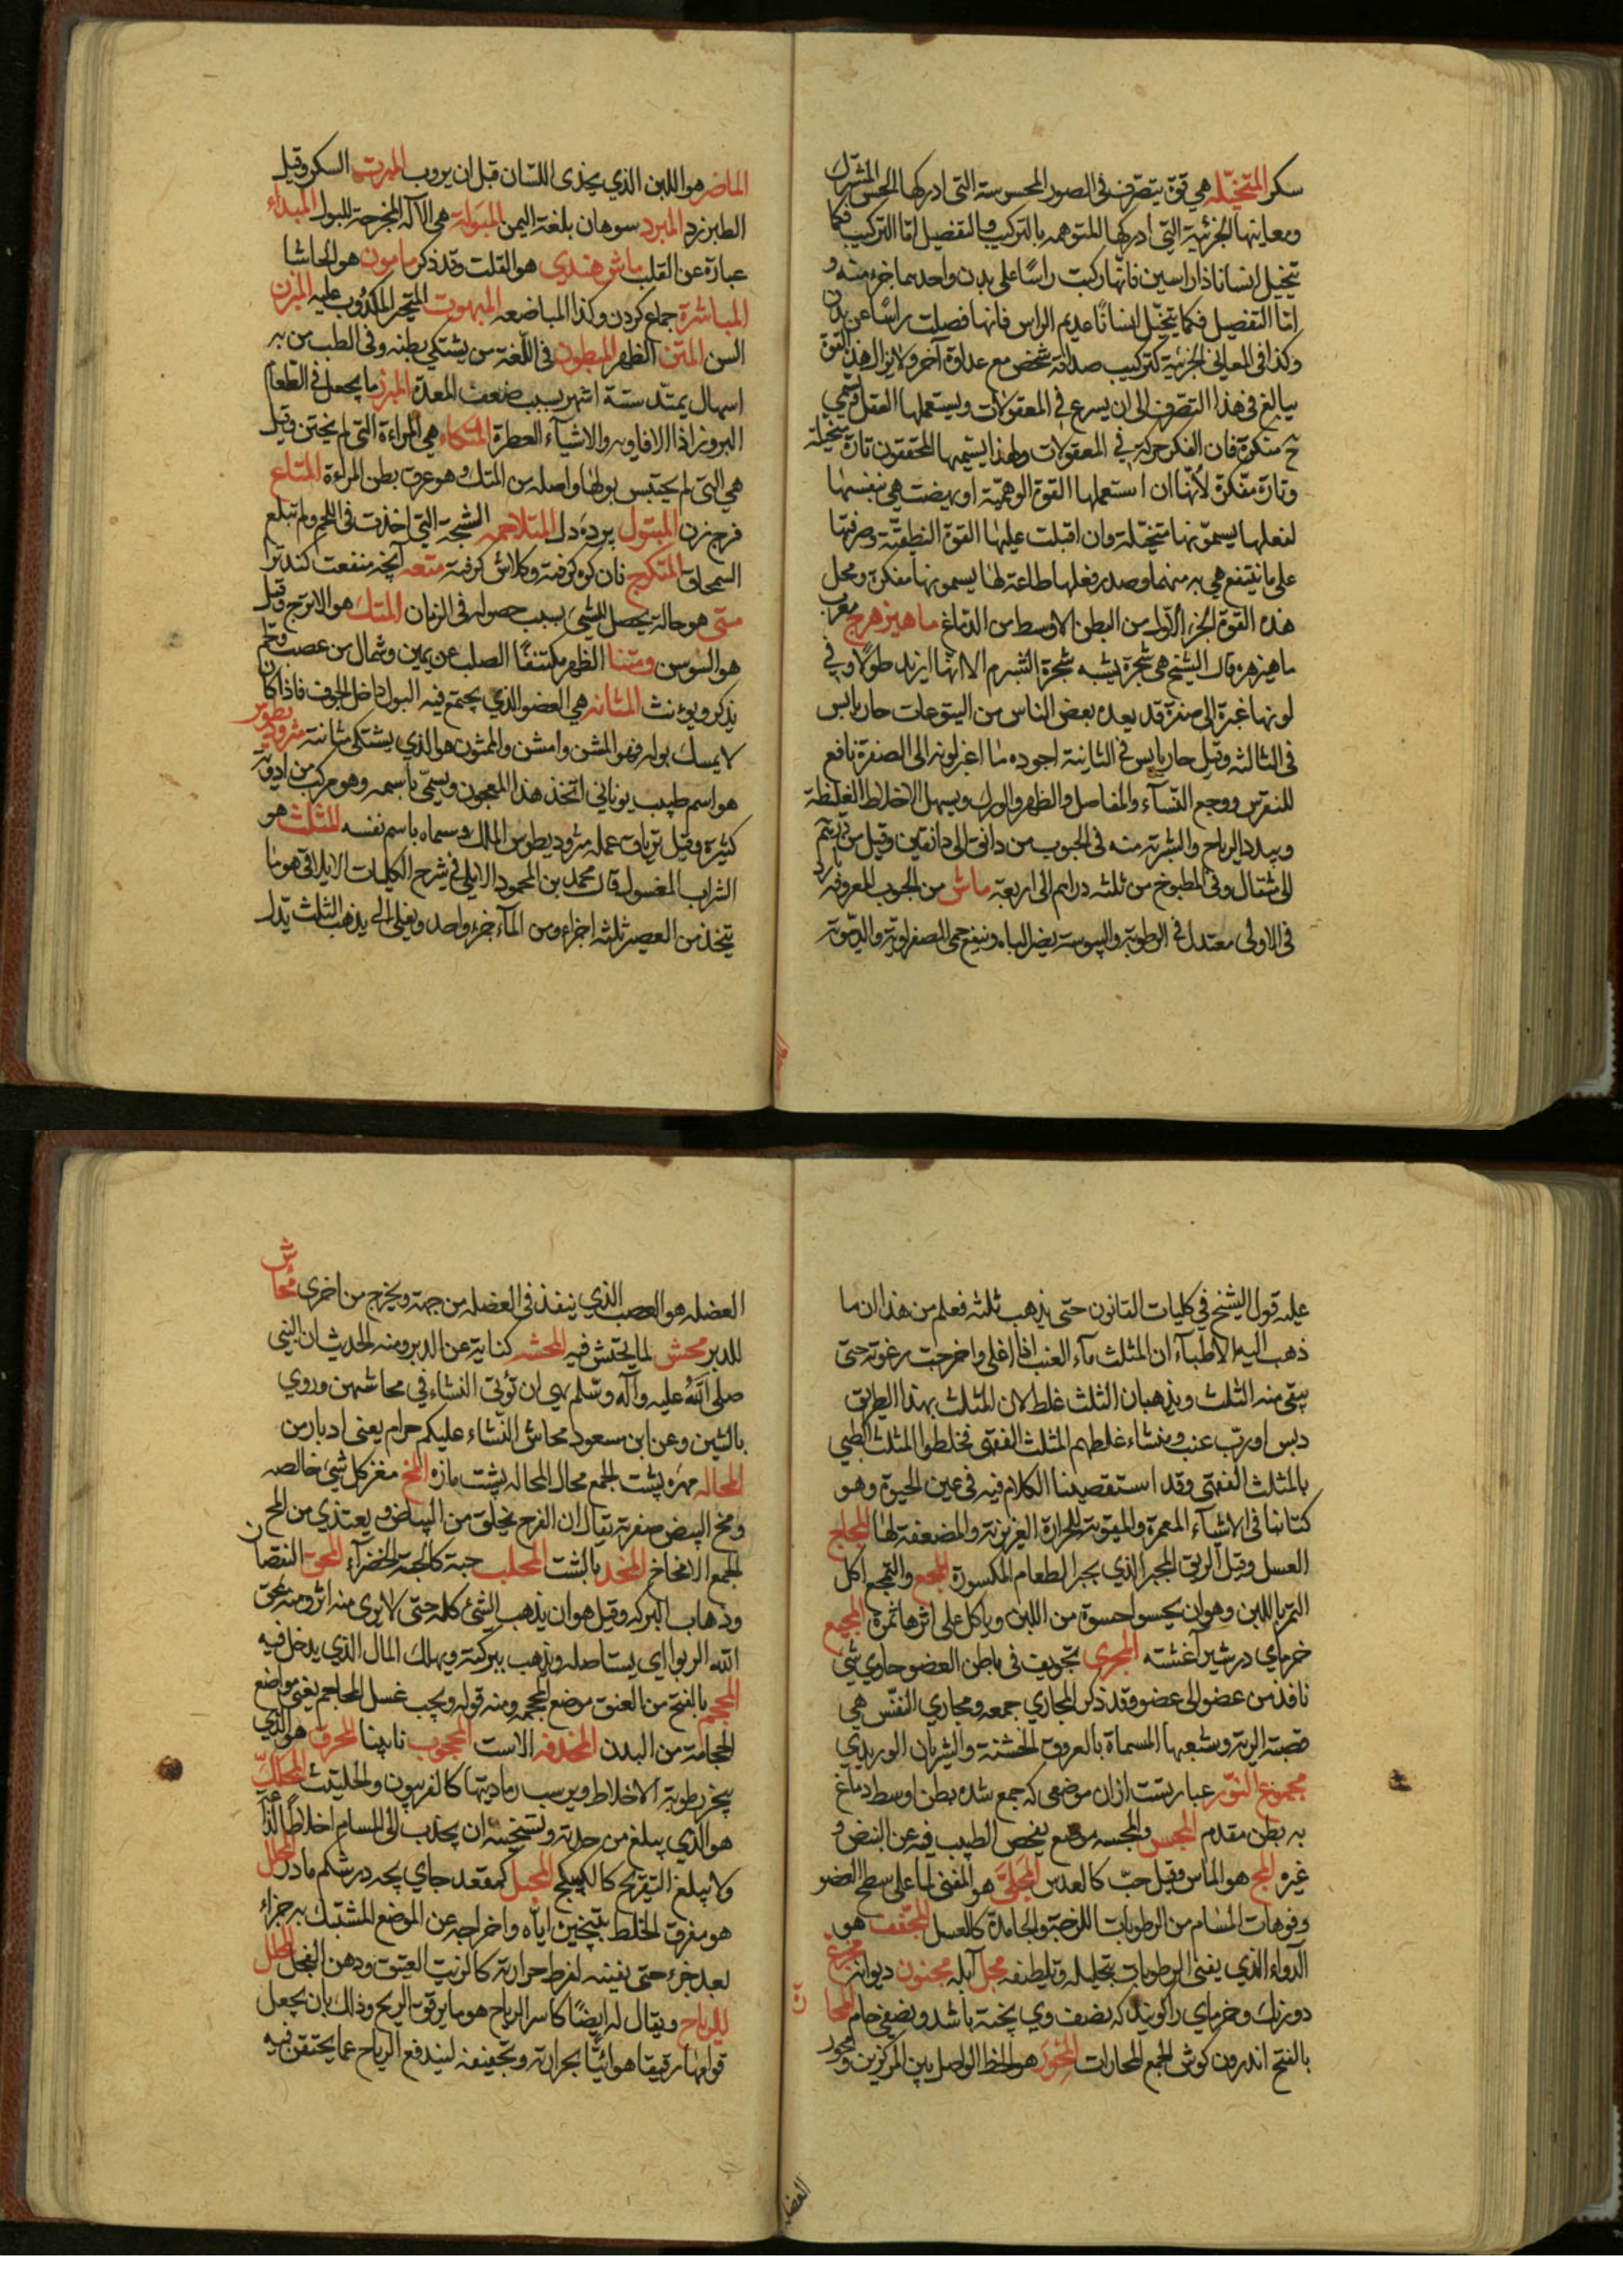 سكر المتخيّله هي قوة يتصرف فى الصور المحسوسة التى ادركها الحس المشترك
ومعانيها الجزئية التي ادركها المتوهمه بالتركيب والتفصيل امّا التركيب فكما
تتخيل انسانا ذا راسين فانّها ركبت راسًا على بدن واحد بما خرء منه و
امّا التفصيل فكما يتخيّل انسانًا عديم الراس فانها فصلت راسًا عن بدن
وكذا فى المعانى الجزئية لتركيب صداقة شخص مع عداوة آخر ولا يزال هذه القوة
يبالغ فى هذا التصرف الى ان يسرع في المعقولات ويستعملها العقل فتسمي
ح متفكرة فان الفكر حركة في المعقولات ولهذا يسميها المحققون تارة متخيلة
وتارة مفكرة لأنّها ان استعملها القوة الوهميّة او نهضت هي بنفسها
لفعلها يسمّونها متخيّلة وان اقبلت عليها القوة النطقيّة وصرفتها
على ما ينتفع هي به منهما وصدر فعلها طاعة لها يسمونها مفكرة ومحل
هذه القوة الجزء الاول من البطن الاوسط من الدماغ ماهيزهرج معرب
ماهيزهره قال الشيخ هي شجرة يشبه شجرة الشبرم الا انها ازيد طولا وفي
لونها غبرة الى صفرة قد يعده بعض الناس من اليتوعات حار يابس
فى الثالثه وقيل حار يابس فى الثانية اجوده ما اغبر لونه الى الصفرة نافع
للنقرس ووجع النسآء والمفاصل والظهر والورك ويسهل الاخلاط الغليظة
ويبدد الرياح والشربة منه فى الحبوب من دانق الى دانقين وقيل من درهم
الى مثقال وفى المطبوخ من ثلثه دراهم الى اربعة ماش من الحبوب المعروفه بارد
فى الاولى معتدل فى الرطوبة واليبوسة يضر الباه وينفع حمى الصفراوية والدمّوية
الماضر هو اللبن الذي يحذى اللسان قبل ان يروب المبرت السكر وقيل
الطبرزد المبرد سوهان بلغة اليمن المبولة هي الآله المخرجة للبول المبداء
عبارة عن القلب ماش هندي هو القلت وقد ذكر مامون هو الحاشا
المباشرة جماع كردن وكذا المباضعه المبهوت المتحير المكذوب عليه المبزن
السن المتن الظهر المبطون فى اللغة من يشتكى بطنه وفى الطب من به
اسهال يمتد ستة اشهر بسبب ضعف المعدة المبزر ما يجعل فى الطعام
البروز اذا الافاويه والاشيآء العطرة المتكاء هي المراءة التى لم تختن وقيل
هي التى لم يحتبس بولها واصله من المتك وهو عرق بطن المراءة المتاع
فرج زن المبتول برده دل المتلاحمه الشجة التي اخذت فى اللحم ولم تبلغ
السمحاق المتكرج نان كره كرفته وكلاش كرفته متعه آنچه منفعت كند تر
متى هو حالة يحصل للشىء بسبب حصوله فى الزمان المتك هو الاترج وقيل
هو السوسن ومتنا الظهر مكتنفا الصلب عن يمين وشمال من عصب ولحم
يذكر ويؤنث المثانه هي العضو الذي يجتمع فيه البول داخل الجوف فاذا كان
لا يمسك بوله فهو المثن وامثن والممثون هو الذي يشتكى مثانته مثروديطوس
هو اسم طبيب يوناني اتخذ هذا المعجون ويسمّى باسمه وهو مركب من ادوية
كثيرة وقيل ترياق عمله مثروديطوس الملك وسماه باسم نفسه المثلث هو
الشراب المغسول قال محمد بن المحمود الآملي فى شرح الكليات الايلاقى هو ما
يتخذ من العصير ثلثه اجزاء ومن المآء جزء واحد ويغلى الى يذهب الثلث يدل
عليه قول الشيخ في كليات القانون حتى يذهب ثلثه فعلم من هذا ان ما
ذهب اليه الاطبآء ان المثلث مآء العنب اذا اغلى واخرجت رغوته حتى
يبقى منه الثلث ويذهبان الثلث غلط لان المثلث بهذا الطريق
دبس او ربّ عنب ومنشاء غلطهم المثلث الفقهى فخلطوا المثلث الطبي
بالمثلث الفقهى وقد استقصينا الكلام فيه فى عين الحيوة وهو
كتابنا فى الاشيآء المعمرة والمقوية للحرارة الغريزية والمضعفة لها المجاج
العسل وقيل الريق المجبر الذي يجبر العظام المكسورة المجع والتمجع اكل
التمر باللبن وهو ان يحسو احسوة من اللبن وياكل على اثرها تمرة المجيع
خرماي در شير آغشته المجرى تجويف فى باطن العضو حاوي شىء
نافذ من عضو الى عضو وقد ذكر المجاري جمعه ومجاري النفس هي
قصبة الرية وشعبها المسماة بالعروق الخشنة والشريان الوريدي
مجموع النور عبارتست ازان موضعى كه جمع شده بطن اوسط دماغ
به بطن مقدم المجس والمجسه موضع يفحص الطبيب فيه عن النبض و
غيره المج هو الماس وقيل حبّ كالعدس المجلّى هو المفنى لما على سطح العضو
وفوهات المسام من الرطوبات اللزجة والجامدة كالعسل المجفف هو
الدواء الذي يفنى الرطوبات بتحليله وتلطيفه مجل آبله مجنون ديوانه مجزع
دو رنك وخرماي را كويند كه نصف وي پخته باشد ونصفى خام المحارة
بالفتح اندرون كوش الجمع المحارات المحور هو الخط الواصل بين المركزين ومحور
العضله هو العصب الذي ينفذ فى العضله من جهة ويخرج من اخرى محاش
للدبر محش لما يحتش فيه المحشه كناية عن الدبر ومنه الحديث ان النبي
صلى الله عليه وآله وسلم نهى ان تؤتى النساء في محاشهن وروي
بالسين وعن ابن مسعود محاش النساء عليكم حرام يعنى ادبارهن
المحاله مهره پشت الجمع محال المحاله پشت مازه المخ مغز كل شىء خالصه
ومخ البيض صفرته يقال ان الفرخ يخلق من البياض ويغتذي من المح
الجمع الامخاخ المخد بالشت المحلب حبة كالحبة الخضرآء المحق النقصان
وذهاب البركه وقيل هو ان يذهب الشئ كله حتى لا يرى منه اثر ومنه يمحق
الله الربوا اي يستاصله ويذهب ببركته ويهلك المال الذي يدخل فيه
المحجم بالفتح من العنق موضع المحجمه ومنه قوله ويجب غسل المحاجم يعنى مواضع
الحجامة من البدن المخدفه الاست المحجوب نابينا المحرق هو الذي
يبخر رطوبة الاخلاط ويرسب رماديتها كالفرفيون والحلتيث المحكك
هو الذي يبلغ من حدته وتسخينه ان يجذب الى المسام اخلاطا لذاعة
ولا يبلغ التقريح كالكبيكج المحبل كمقعد جاي بچه در شكم مادر المحلل
هو مفرق الخلط بتبخين اياه واخراجه عن الموضع المشتبك به جزاء
بعد جزء حتى يفنيه لفرط حرارته كالزيت العتيق ودهن الفجل المحلل
للرياح ويقال له ايضًا كاسر الرياح هو ما يرقق الريح وذلك بان يجعل
قوامها رقيقا هوائيًّا بحرارته وتجفيفه ليندفع الرياح عما يحتقن فيه
العضله